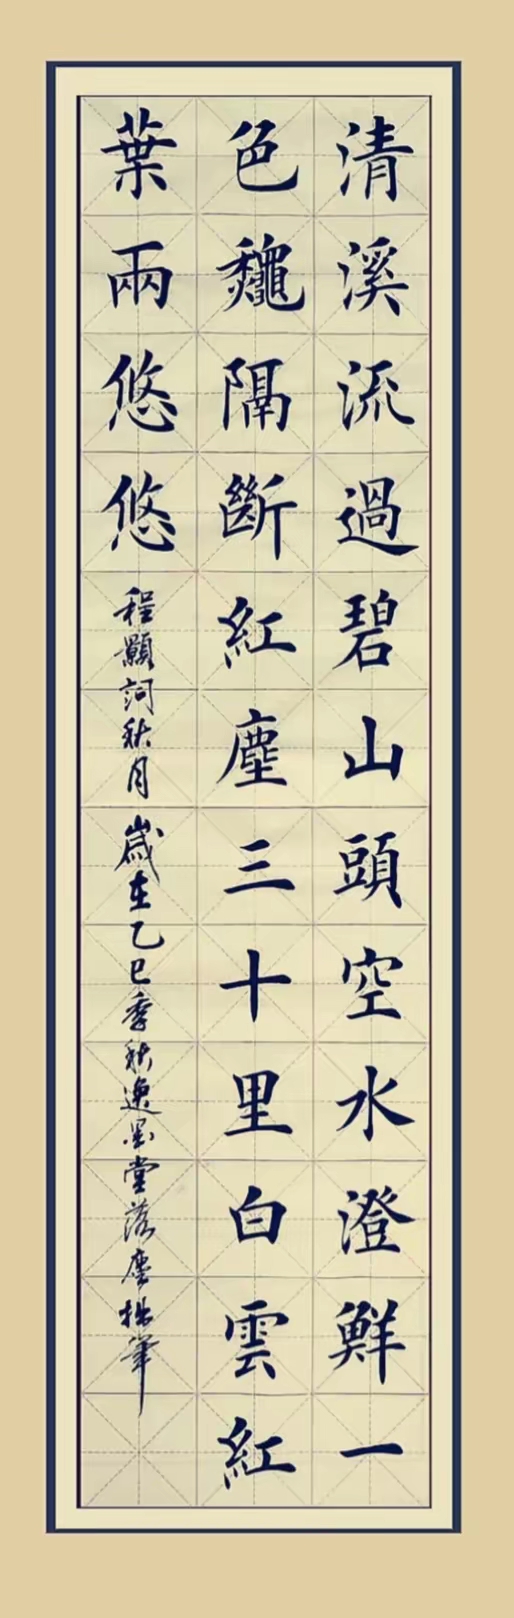 清溪流過碧山頭空水澄鮮一
色龝隔斷紅塵三十里白雲紅
葉兩悠悠
程顥詞秋月 歲在乙巳季秋逸墨堂落塵拙筆